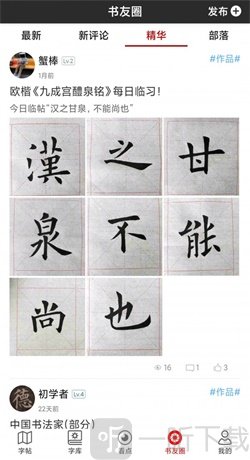 书友圈 发布+
最新 新评论 精华 部落
蟹棒 Lv.2 #作品#
1月前
欧楷《九成宫醴泉铭》每日临习！
今日临帖“汉之甘泉，不能尚也”
漢 之 甘
泉 不 能
尚 也
16 1 3
初学者 Lv.4 #作品#
22天前
中国书法家(部分)
一听下载
字帖 字库 看点 书友圈 我的